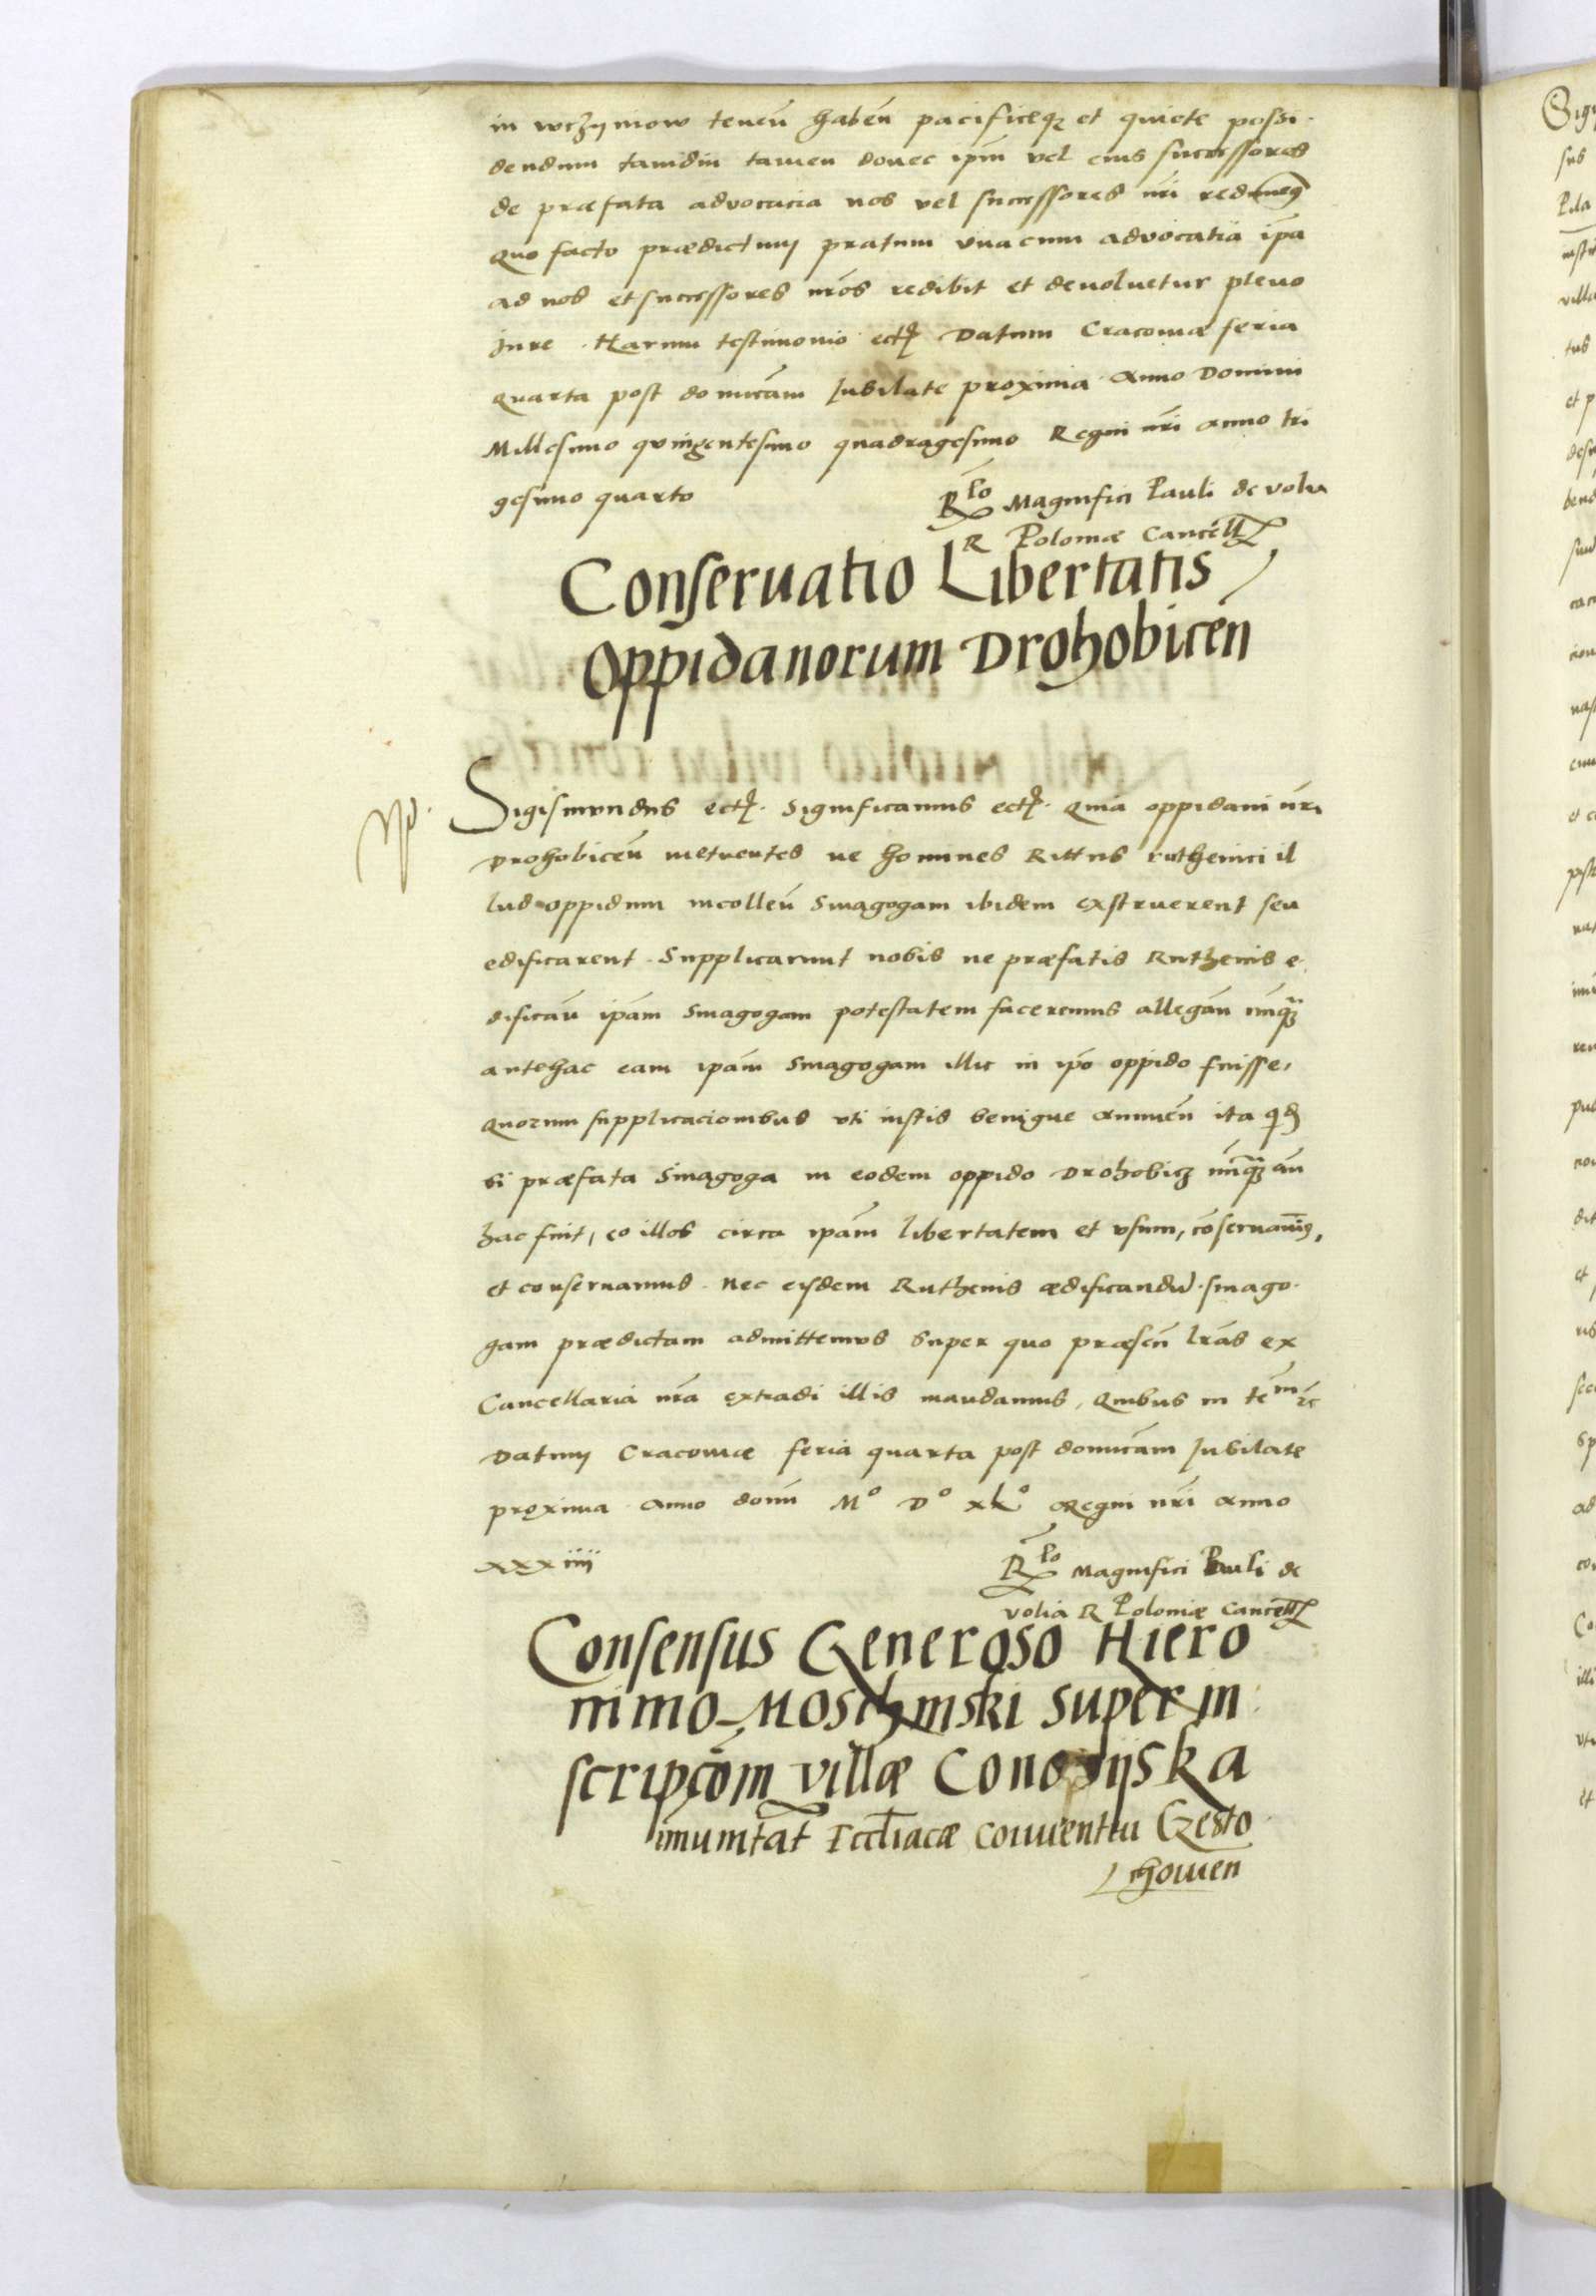 in wrzyniow teneñ habeñ pacificeq₃ et quiete possi-
dendum tamdiu tamen donec ip̃m vel eius successores
de præfata advocacia nos vel successores nr̃i redimem9
Quo facto prædictum pratum vnacum advocatia ip̃a
ad nos et successores nr̃os redibit et devoluetur pleno
Jure. Harum testimonio ect. Datum Cracoviæ feria
quarta post domicam Jubilate proxima Anno Domini
Millesimo qvingentesimo quadragesimo Regni nr̃i anno tri
gesimo quarto
R̃lo Magnifici Pauli de volia
R Poloniæ Cancell
Conseruatio Libertatis
Oppidanorum Drohobiceñ
Sigismvndus ect. Significamus ect. Quia oppidani nr̃i
Drohobiceñ metuentes ne homines Rittus rutheinici il
lud oppidum incolleñ Sinagogam ibidem exstruerent seu
edificarent. Supplicarunt nobis ne præfatis Ruthenis e-
dificañ ip̃am Sinagogam potestatem faceremus allegañ nunq̃₃
antehac eam ip̃am Sinagogam illic in ip̃o oppido fuisse,
Quorum supplicacionibus vti iustis benigne annueñ ita qd
si præfata Sinagoga in eodem oppido Drohobicz nunq̃₃ añ
hac fuit, eo illos circa ip̃am libertatem et vsum, cõseruavim9,
et conseruamus. Nec eisdem Ruthenis ædificandu. sinago-
gam prædictam admittemvs Super quo præseñ lr̃as ex
Cancellaria nr̃a extradi illis mandamus, Quibus in tem̃ rc
Datum Cracoviæ feria quarta post domicam Jubilate
proxima Anno domi Mº Dº xlº Regni nr̃i anno
xxxiiii
R̃lo Magnifici Pauli de
volia R Poloniæ Cancell
Consensus Generoso Hiero
nimo Moschinski super in
scripcõm villæ Conopijska
imunitat Eccl̃iacæ Conventui Czesto
chouien